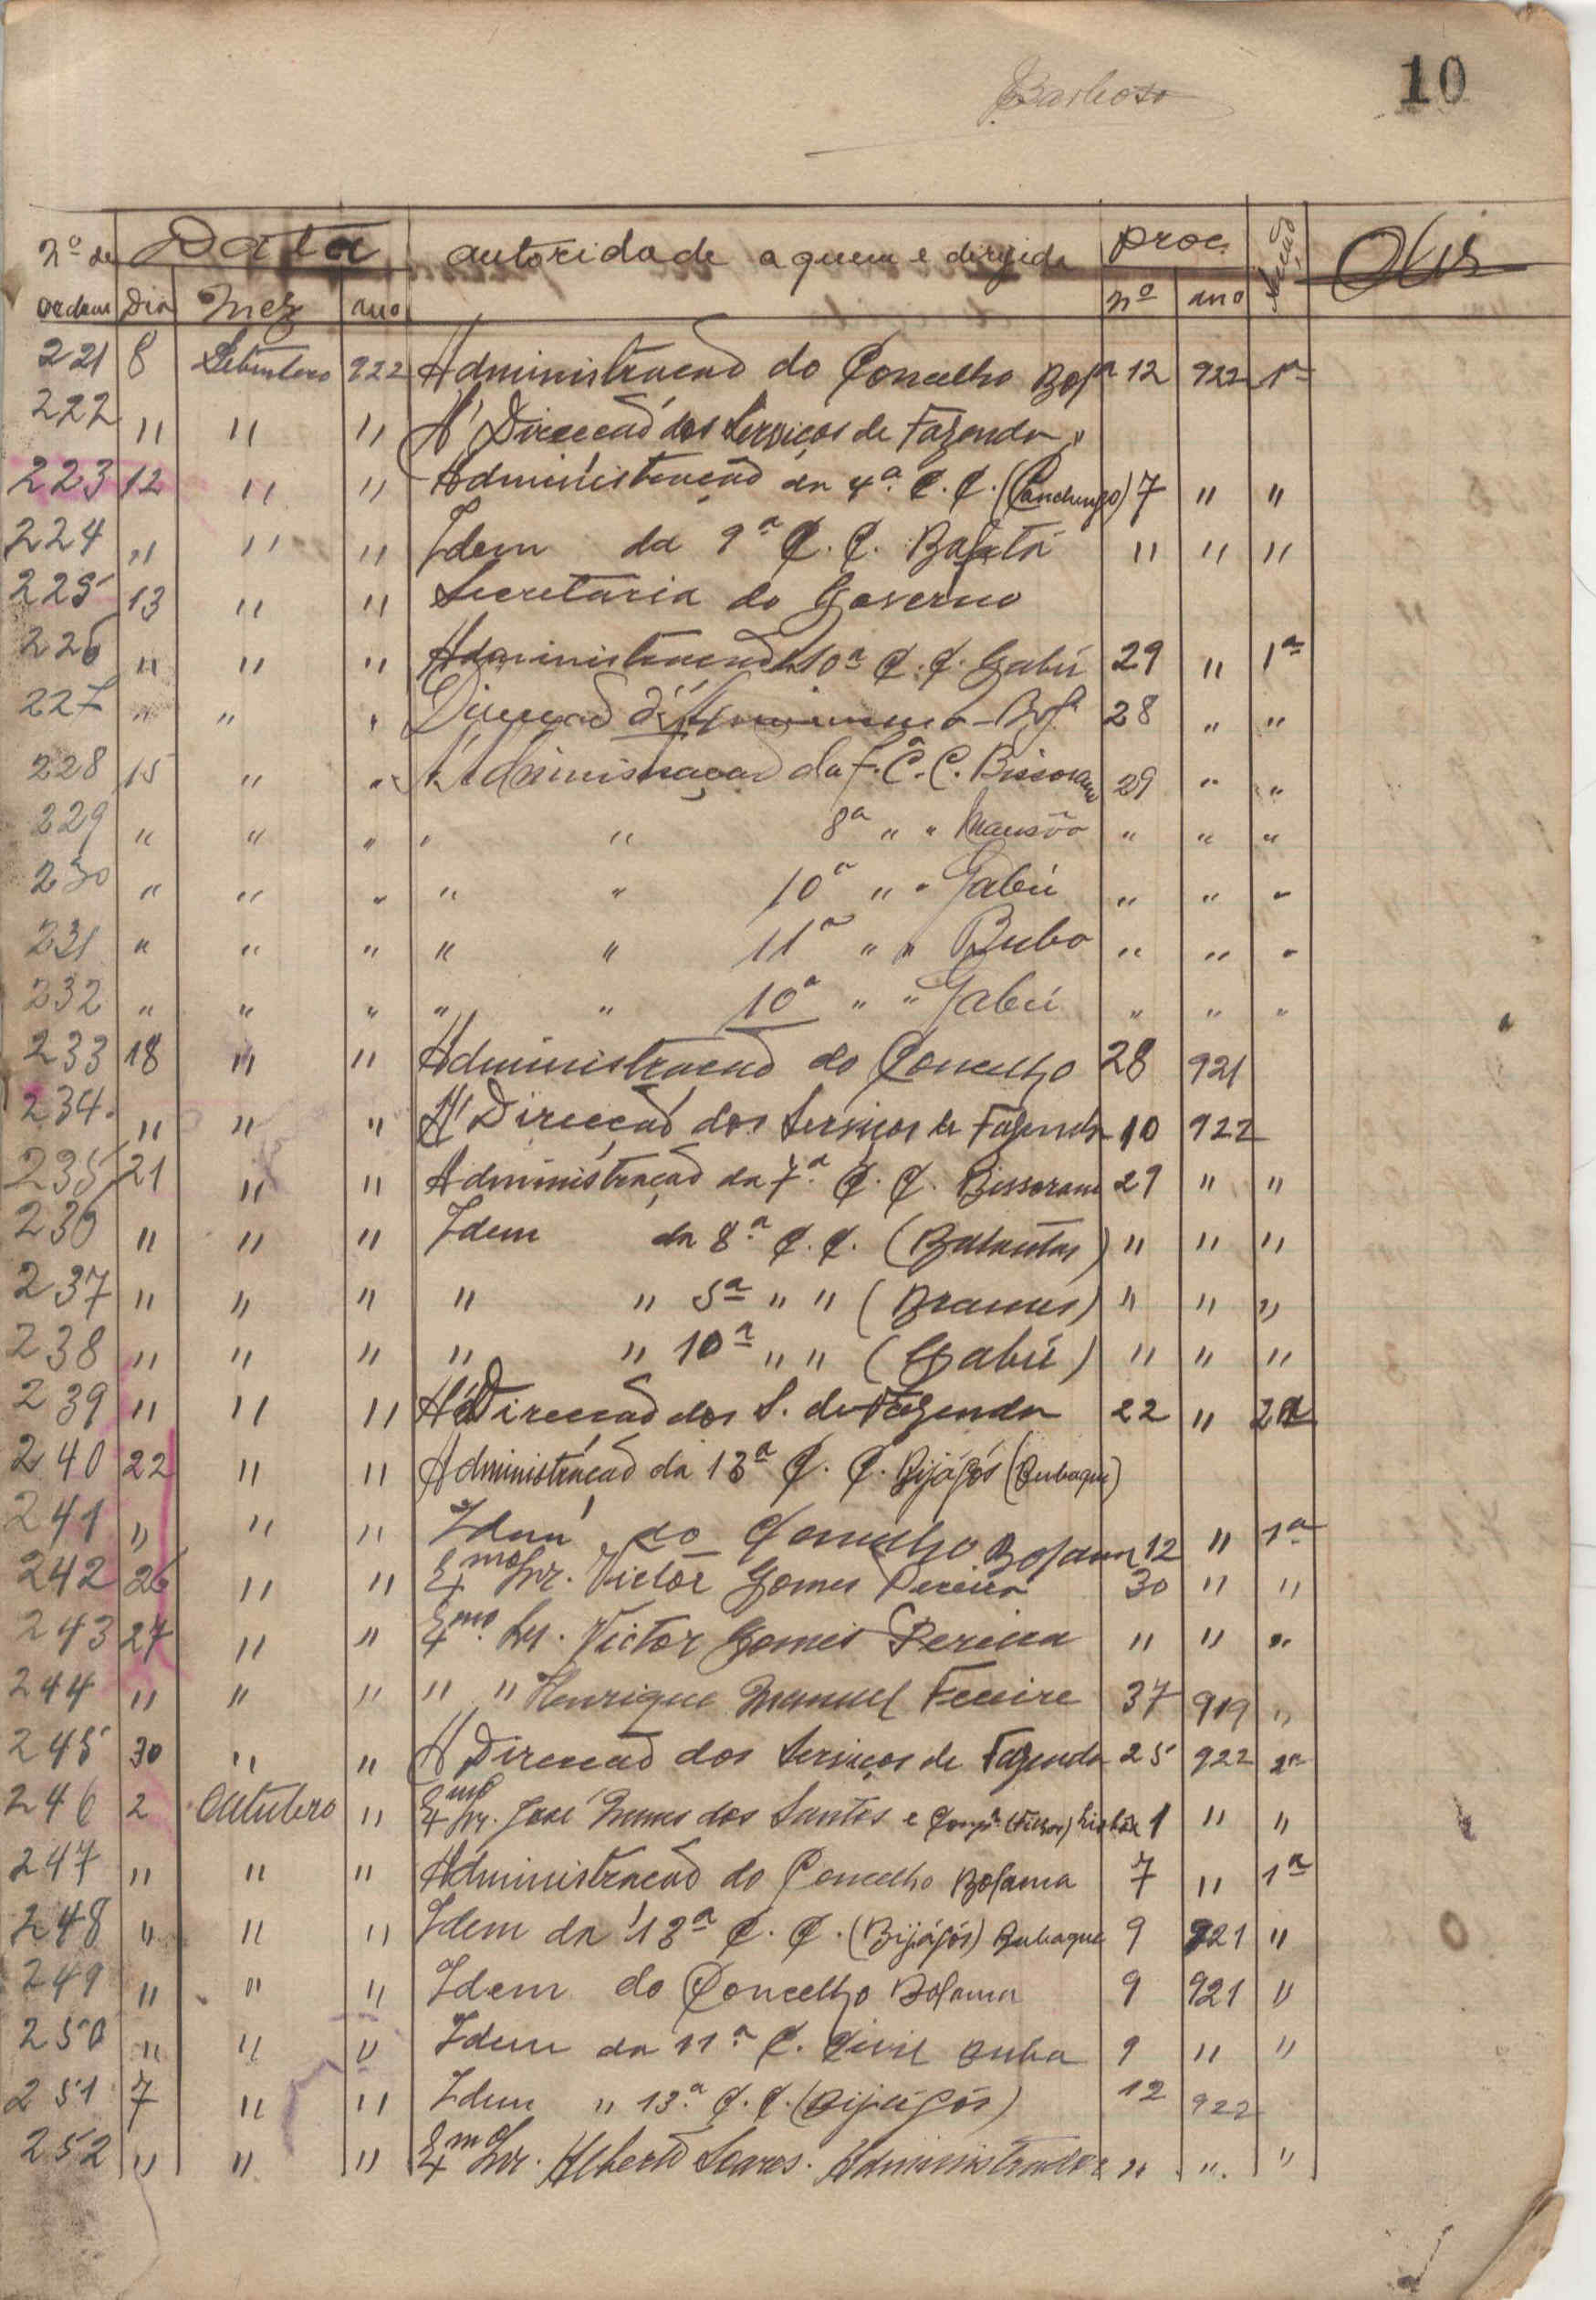 10
Barbosa
Nº de Data autoridade a quem é dirigida proc. Secção Obs
ordem Dia Mez ano nº ano
221 8 Setembro 922 Administracao do Concelho Bolª 12 922 1ª
222 " " " A' Direccão dos Serviços de Fazenda "
223 12 " " Administração da 4ª C. C. (Canchungo) 7 " "
224 " " " Idem da 9ª C. C. Bafatá " " "
225 13 " " Secretaria do Governo
226 " " " Administracao da 10ª C. C. Gabú 29 " 1ª
227 " " " Direcção Bolª 28 " "
228 15 " " A' Administração da 7.ª C. C. Bissoram 29 " "
229 " " " " " 8ª " " Mansôa " " "
230 " " " " " 10ª " " Gabú " " "
231 " " " " " 11ª " " Buba " " "
232 " " " " " 10ª " " Gabú " " "
233 18 " " Administracao do Concelho 28 921
234 " " " A' Direcção dos Serviços de Fazenda 10 922
235 21 " " Administração da 7.ª C. C. Bissoram 29 " "
236 " " " Idem da 8.ª C. C. (Balantas) " " "
237 " " " " " 5ª " " (Brames) " " "
238 " " " " " 10ª " " (Gabú) " " "
239 " " " A' Direcção dos S. de Fazenda 22 " 2ª
240 22 " " Administração da 13ª C. C. Bijágós (Bubaque)
241 " " " Idem do Concelho Bolama 12 " 1ª
242 26 " " Exmo Snr. Victor Gomes Pereira 30 " "
243 27 " " Exmo. Sr. Victor Gomes Pereira " " "
244 " " " " " Henrique Manuel 37 919 "
245 30 " " A' Direccao dos Serviços de Fazenda 25 922 2ª
246 2 Outubro " Exmo Snr. José Nunes dos Santos e Compª (Filhos) Lisboa 1 " "
247 " " " Administracao do Concelho Bolama 7 " 1ª
248 " " " Idem da 13ª C. C. (Bijágós) Bubaque 9 921 "
249 " " " Idem do Concelho Bolama 9 921 "
250 " " " Idem da 11.ª C. Civil Buba 9 " "
251 7 " " Idem " 13.ª C. C. (Bijágós) 12 922
252 " " " Exmo Snr. Alberto Soares. Administrador " " "